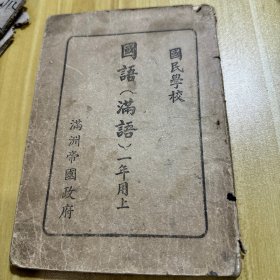 國民學校
國語(滿語)一年用上
滿洲帝國政府